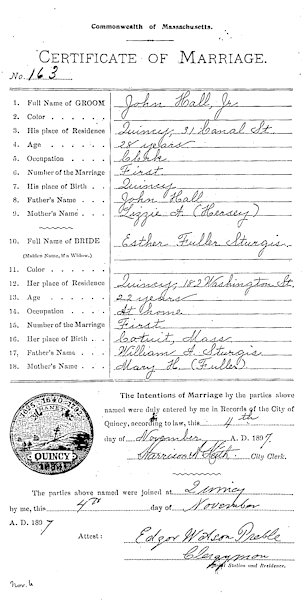 Commonwealth of Massachusetts.
CERTIFICATE OF MARRIAGE.
No. 163
1. Full Name of GROOM John Hall, Jr.
2. Color
3. His place of Residence Quincy, 31 Canal St.
4. Age 28 years
5. Occupation Clerk
6. Number of the Marriage First
7. His place of Birth Quincy
8. Father's Name John Hall
9. Mother's Name Lizzie A. (Hersey)
10. Full Name of BRIDE Esther Fuller Sturgis.
(Maiden Name, if a Widow.)
11. Color
12. Her place of Residence Quincy, 182 Washington St.
13. Age 22 years
14. Occupation At home
15. Number of the Marriage First
16. Her place of Birth Cotuit, Mass
17. Father's Name William A. Sturgis
18. Mother's Name Mary H. (Fuller)
The Intentions of Marriage by the parties above
named were duly entered by me in Records of the City of
Quincy, according to law, this 4th
day of November A. D. 1897.
Harrison A. Keith City Clerk.
QUINCY
The parties above named were joined at Quincy
by me, this 4th day of November
A. D. 1897
Attest: Edgar Watson Preble
Clergyman
Official Station and Residence.
Nov. 6